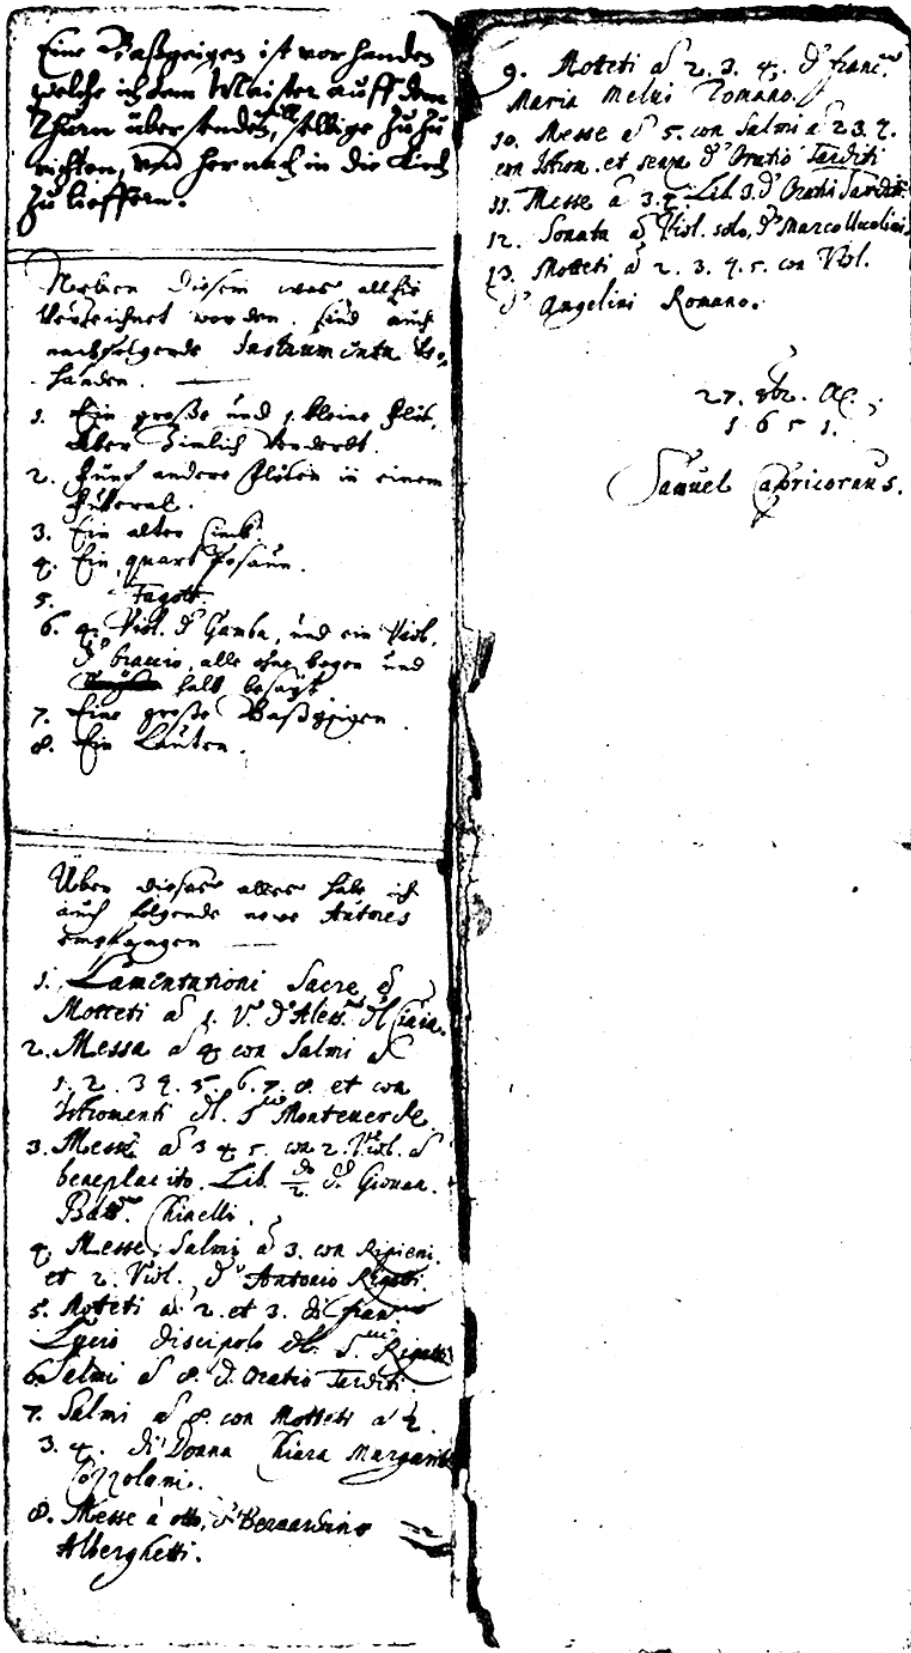 Eine Baßgeigen ist vorhanden
welche ich dem Meister auff dem
Thurn übersenden will, selbige zu zu
richten, und hernach in die Kirch
zu lieffern.
Neben diesem was allhie
verzeichnet worden, sind auch
nachfolgende Instrumenta vor
handen.
1. Ein große und 1. kleine Flöt,
aber zimlich verderbt.
2. Fünf andere Flöten in einem
Futteral.
3. Ein alter Zinck.
4. Ein quart Posaun.
5. Fagott.
6. 4. Viol. d' Gamba, und ein Viol.
d' braccio, alle ohne bogen und
halb besayt.
7. Eine große Baßgeigen.
8. Ein Lauten.
Über dieses alles habe ich
auch folgende newe Autores
empfangen
1. Lamentationi Sacre è
Motteti à 1. V. d' Aless. dl Ciaia.
2. Messa à 4 con Salmi à
1. 2. 3 4. 5. 6. 7. 8. et con
Istromenti dl. Sre Monteverde.
3. Messe à 3 4 5. con 2. Viol. à
beneplacito. Lib. 2. do d. Giovan.
Batt. Chinelli.
4. Messe, Salmi à 3. con Ripieni.
et 2. Viol. d' Antonio Rigatti.
5. Moteti à 2. et 3. di Fran.co
Lucio discipolo dl. S. Rigatti
6. Salmi à 8. d. Oratio Tarditi.
7. Salmi à 8. con Motteti à 2
3. 4. di Donna Chiara Margarita
Cozzolani.
8. Messe à otto, d' Bernardino
Alberghetti.
9. Motteti à 2. 3. 4. d' Franc.co
Maria Melvi Romano.
10. Messe à 5. con Salmi à 2 3. 4.
con Istrom. et senza d' Oratio Tarditi
11. Messe à 3. 4. Lib. 3. d' Oratii Tarditi.
12. Sonata à Viol. solo, d' Marco Uccolini.
13. Motteti à 2. 3. 4. 5. con Viol.
d' Angelini Romano.
27. 8br. Ao.
1651.
Samuel Capricornus.